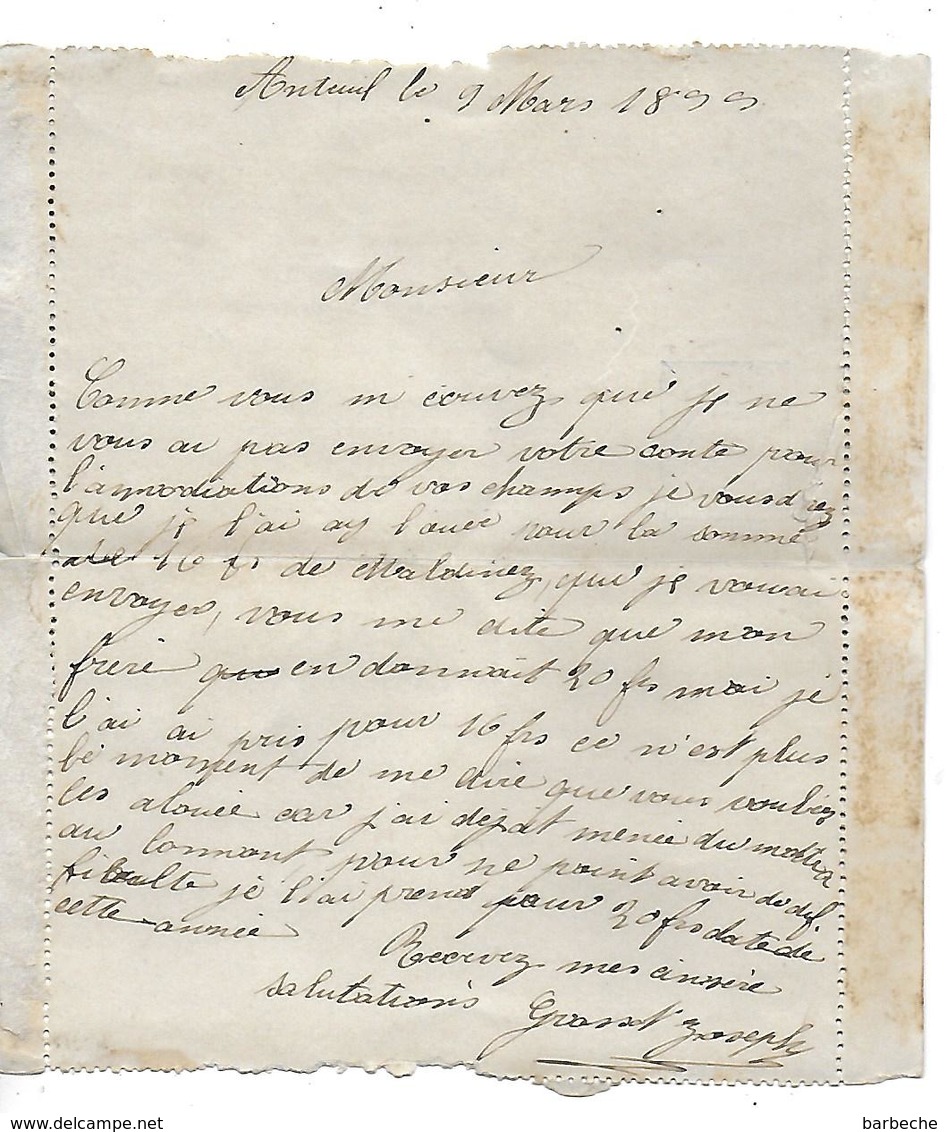 Auteuil le 9 Mars 1899
Monsieur
Comme vous m ecrivez que je ne
vous ai pas envoyer votre conte pour
l'amodiations de vos champs je vous direz
que je l'ai ay louer pour la somme
de 16 frs de que je vous ai
envoyer, vous me dite que mon
frere en donnait 20 frs moi je
l'ai ai pris pour 16 frs ce n'est plus
le moment de me dire que vous vouliez
les alouée car j'ai dejat menée du
au pour ne point avoir de dif
ficulte je l'ai prend pour 20 frs date de
cette année
Recevez mes cinsère
salutations Grand Joseph
barbeche